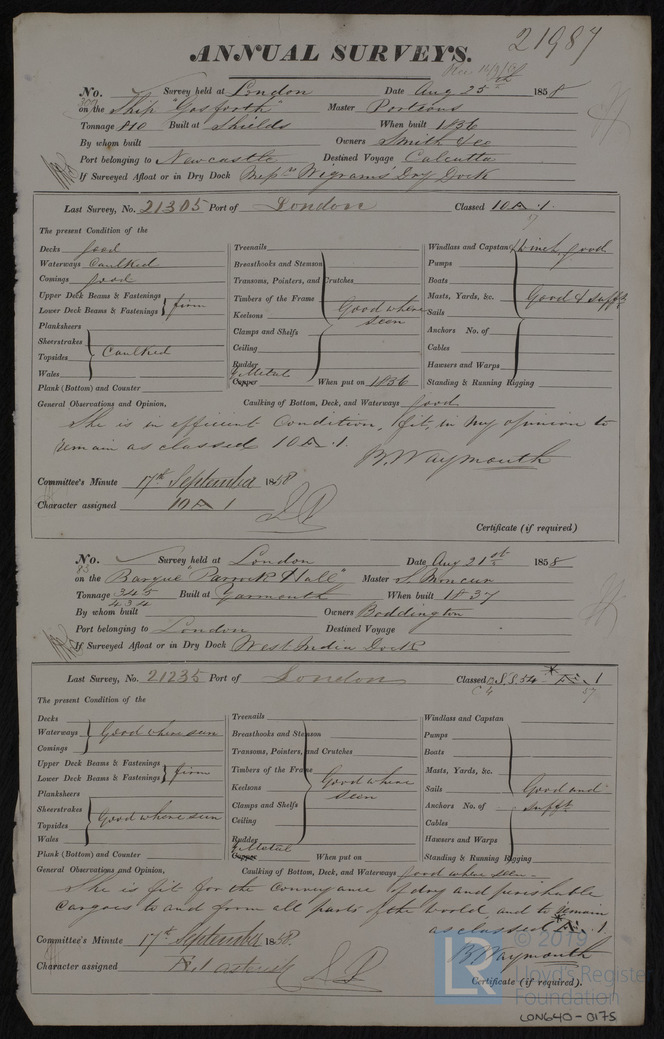 21987
ANNUAL SURVEYS.
No. Survey held at London Date Aug 25th 1858
on the Ship "Gosforth" Master Portions
Tonnage 810 Built at Shields When built 1836
By whom built Owners Smith & Co
Port belonging to Newcastle Destined Voyage Calcutta
If Surveyed Afloat or in Dry Dock Messrs Wigrams' Dry Dock
Last Survey, No. 21305 Port of London Classed 10 A .1.
57
The present Condition of the
Decks good Treenails Windlass and Capstan good
Waterways Caulked Breasthooks and Stemson Pumps
Comings good Transoms, Pointers, and Crutches Boats
Upper Deck Beams & Fastenings Timbers of the Frame Masts, Yards, &c. Good & sufft
Lower Deck Beams & Fastenings firm Keelsons Good where seen Sails
Planksheers Clamps and Shelfs Anchors No. of
Sheerstrakes Ceiling Cables
Topsides Caulked Rudder Hawsers and Warps
Wales Y Metal
Plank (Bottom) and Counter Copper When put on 1836 Standing & Running Rigging
General Observations and Opinion, Caulking of Bottom, Deck, and Waterways good
She is in efficient Condition, fit, in my opinion to
remain as classed 10 A .1.
B. Waymouth
Committee's Minute 17th September 1858
Character assigned 10 A 1
Certificate (if required)
No. Survey held at London Date Aug 21st 1858
85
on the Barque "Parrock Hall" Master S. Moncur
Tonnage 345 Built at Yarmouth When built 1837
434
By whom built Owners Boddington
Port belonging to London Destined Voyage
If Surveyed Afloat or in Dry Dock West India Dock
Last Survey, No. 21235 Port of London Classed
57
The present Condition of the
Decks Treenails Windlass and Capstan
Waterways Good where seen Breasthooks and Stemson Pumps
Comings Transoms, Pointers, and Crutches Boats
Upper Deck Beams & Fastenings Timbers of the Frame Masts, Yards, &c.
Lower Deck Beams & Fastenings firm Keelsons Good where seen Sails Good and
Planksheers
Sheerstrakes Clamps and Shelfs Anchors No. of sufft
Topsides Good where seen Ceiling Cables
Wales Rudder Hawsers and Warps
Y Metal
Plank (Bottom) and Counter Copper When put on Standing & Running Rigging
General Observations and Opinion, Caulking of Bottom, Deck, and Waterways Good where seen
She is fit for the Conveyance of dry and perishable
Cargoes to and from all parts of the world, and to remain
as classed Æ .1.
B. Waymouth
Committee's Minute 17th September 1858.
Character assigned Æ.1 asterisk
Certificate (if required).
© 2019
LR Lloyd's Register
Foundation
LON640-0175